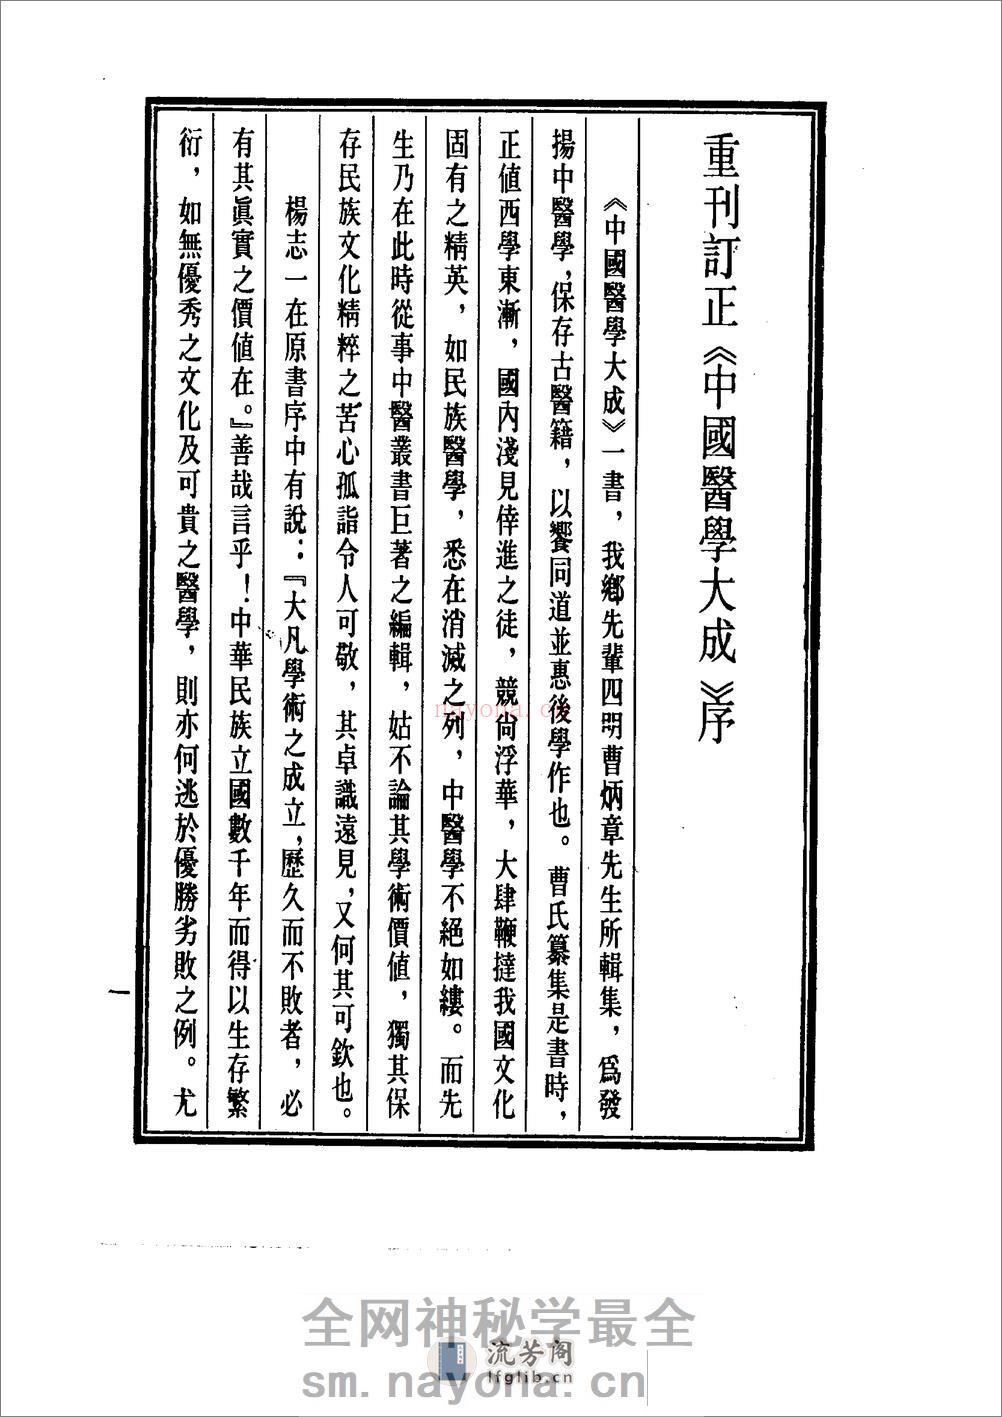 重刊訂正《中國醫學大成》序
《中國醫學大成》一書，我鄉先輩四明曹炳章先生所輯集，爲發
揚中醫學，保存古醫籍，以饗同道並惠後學作也。曹氏纂集是書時，
正値西學東漸，國內淺見倖進之徒，競尙浮華，大肆鞭撻我國文化
固有之精英，如民族醫學，悉在消滅之列，中醫學不絕如縷。而先
生乃在此時從事中醫叢書巨著之編輯，姑不論其學術價値，獨其保
存民族文化精粹之苦心孤詣令人可敬，其卓識遠見，又何其可欽也。
楊志一在原書序中有說：『大凡學術之成立，歷久而不敗者，必
有其眞實之價値在。』善哉言乎！中華民族立國數千年而得以生存繁
衍，如無優秀之文化及可貴之醫學，則亦何逃於優勝劣敗之例。尤
一
nayona.cn
全网神秘学最全
流芳阁
lfglib.cn
sm.nayona.cn